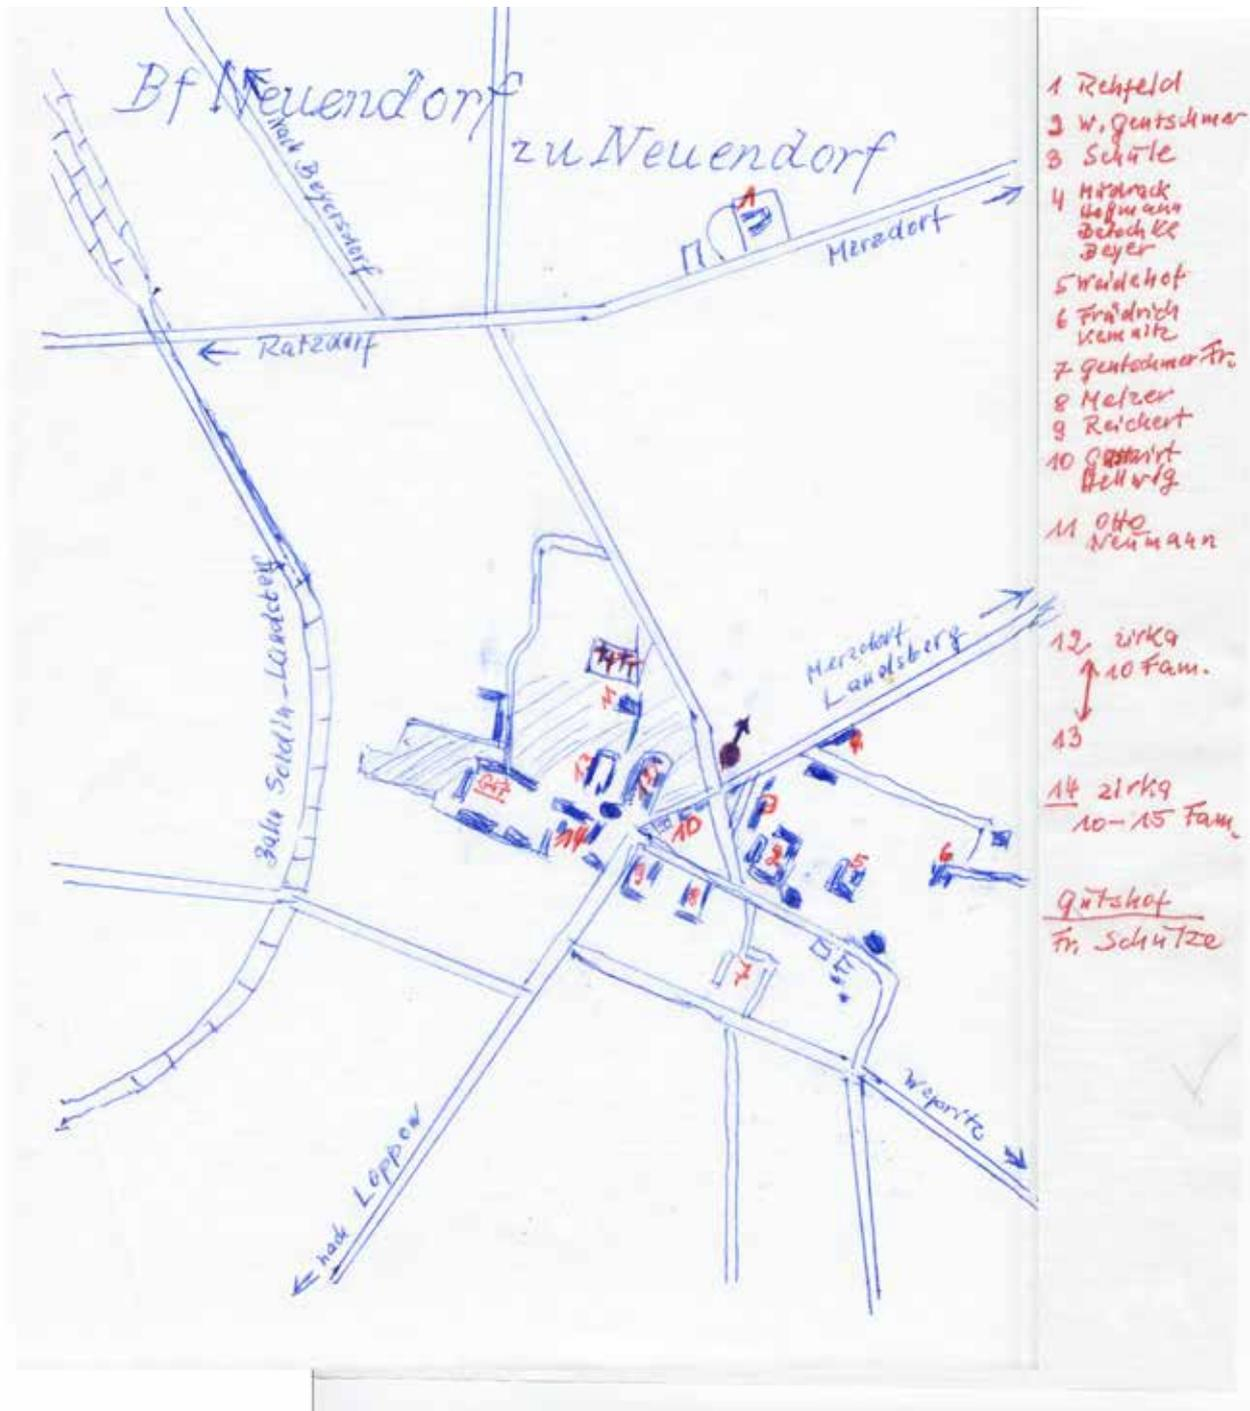 Bf Neuendorf
zu Neuendorf
nach Beyersdorf
Merzdorf
Ratzdorf
Bahn Soldin-Landsberg
Merzdorf
Landsberg
Gut
nach Loppow
Wepritz
1
11
13
12
14
10
4
3
2
5
6
9
8
7
1 Rehfeld
2 W. Gentschmer
3 Schule
4
Hofmann
Beyer
5 Weidehof
6 Friedrich
Kemnitz
7 Gentschmer Fr.
8 Melzer
9 Reichert
10 Gastwirt
Hellwig
11 Otto
Neumann
12. zirka
10 Fam.
13
14 zirka
10-15 Fam.
Gutshof
Fr. Schulze